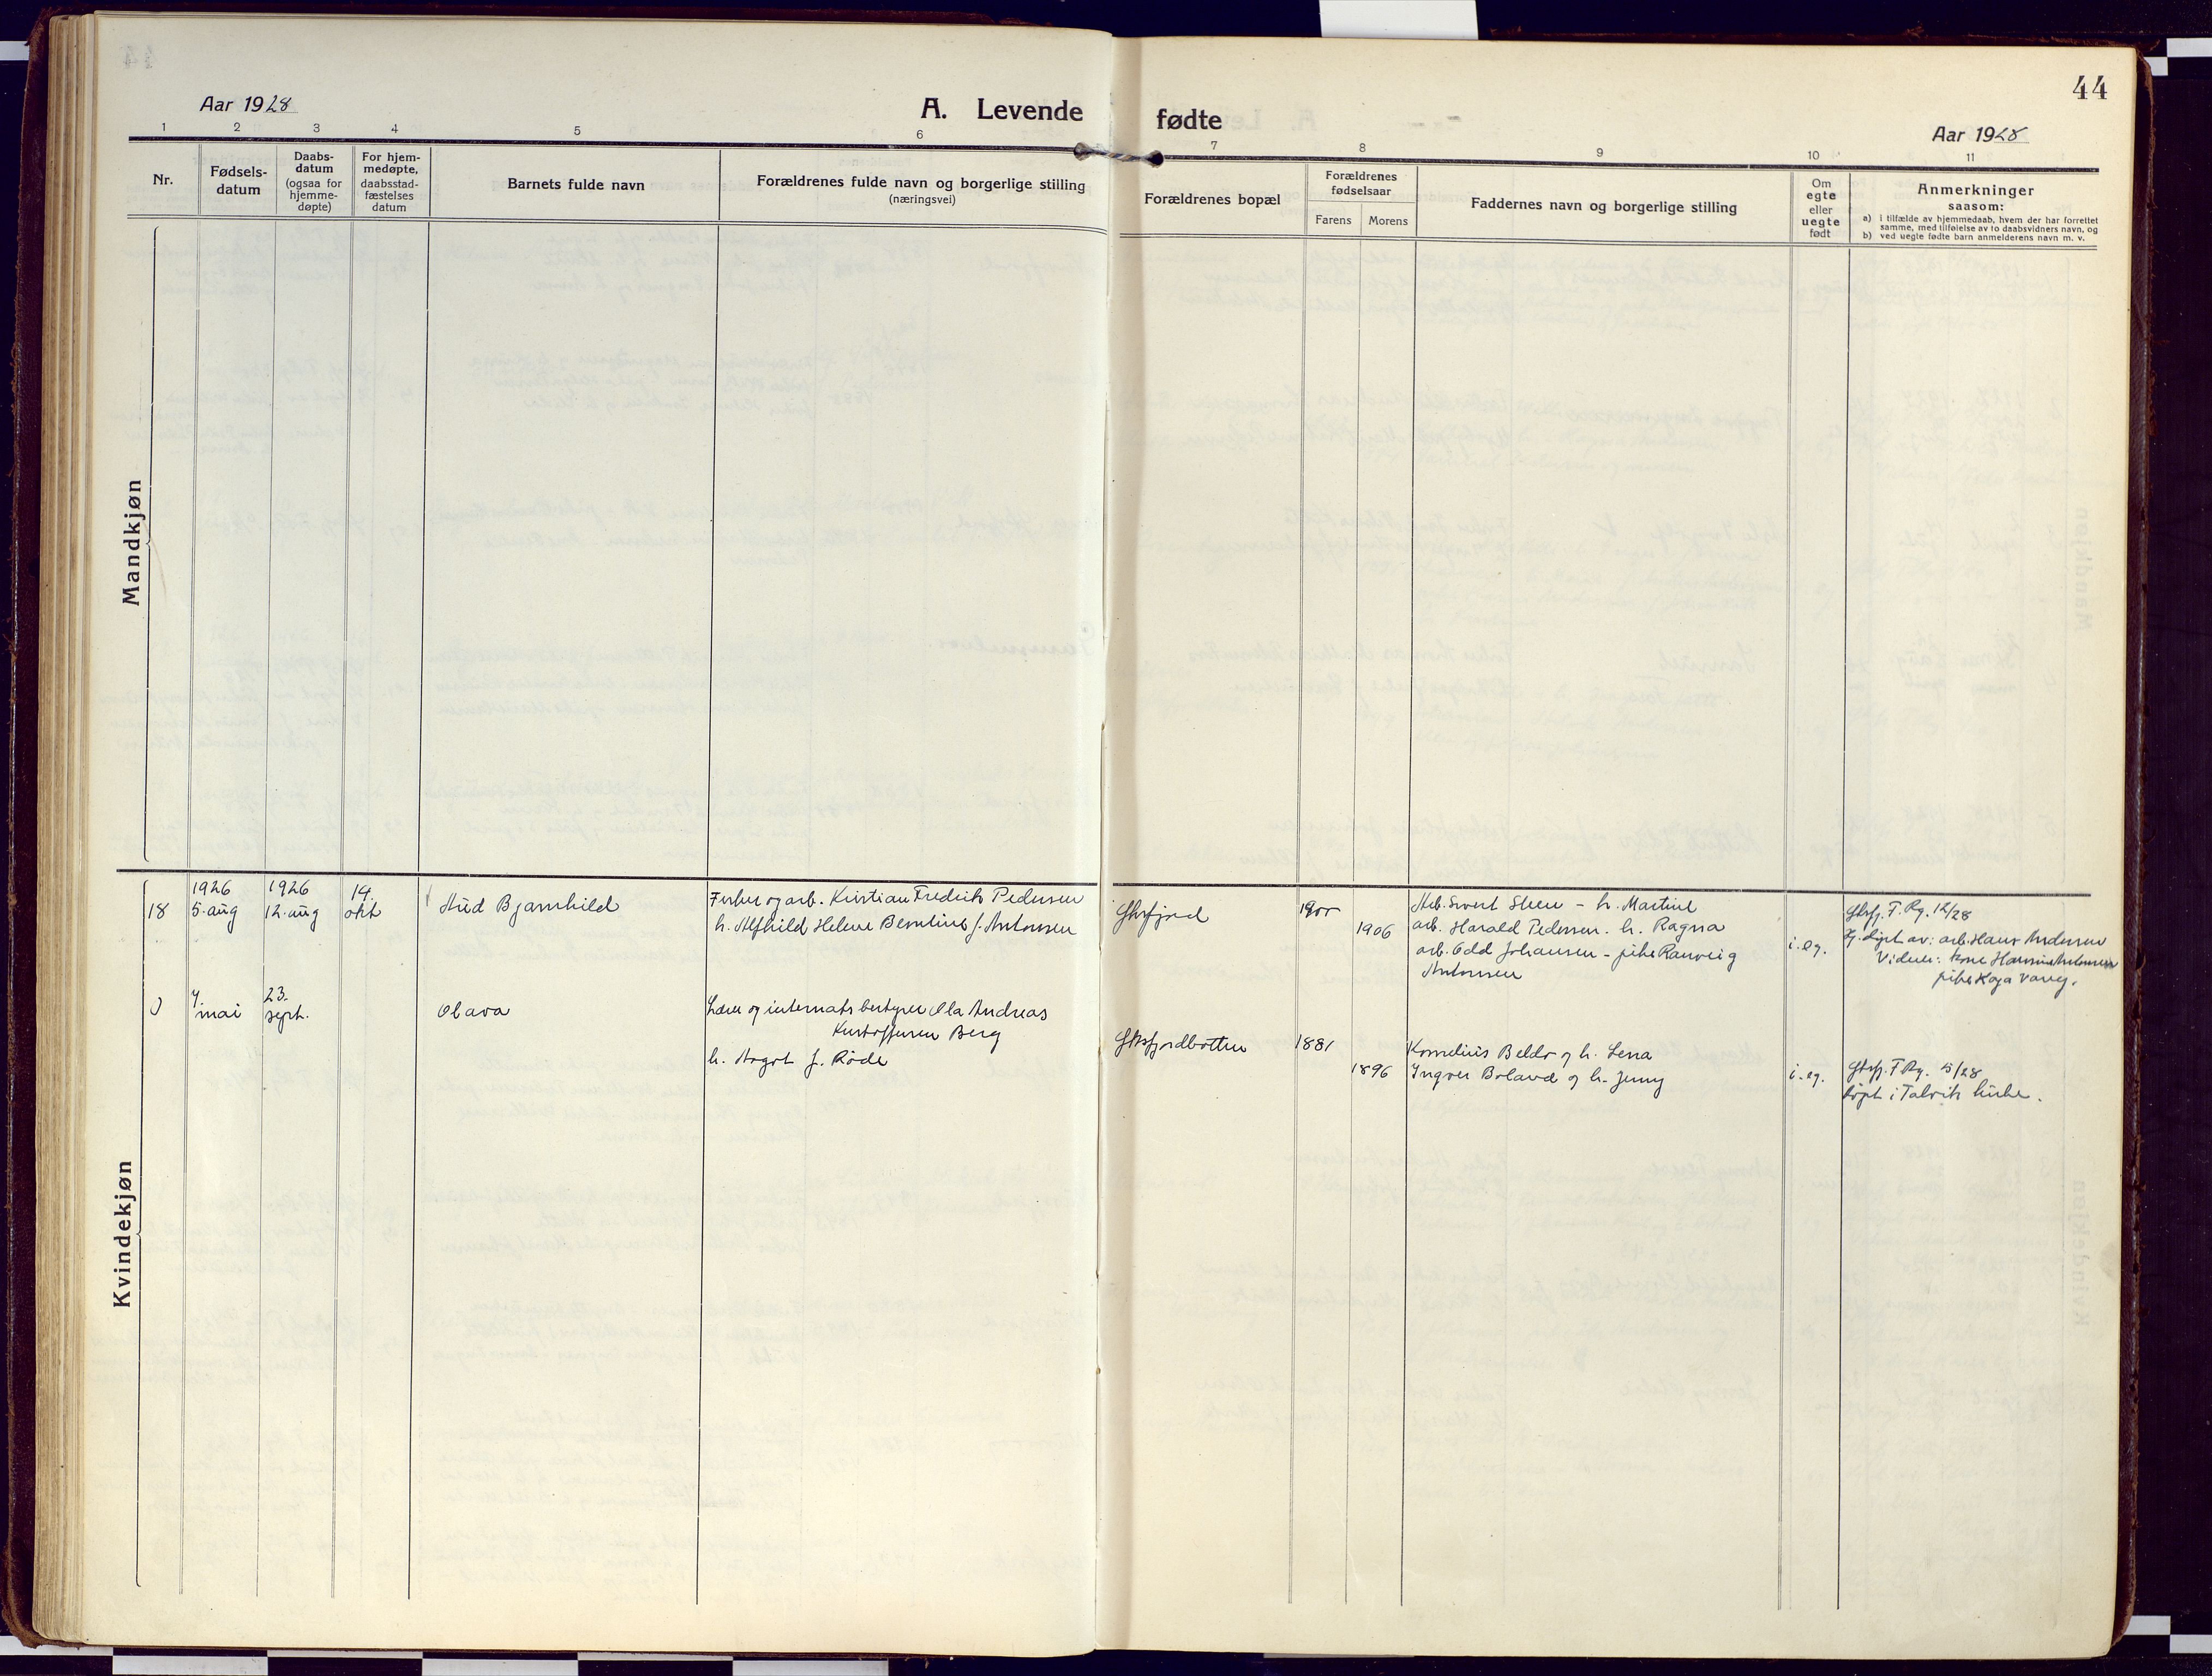 44
Aar 1928
A. Levende fødte
Aar 1928
1 2 3 4 5 6 7 8 9 10 11
Nr.
Fødsels-
datum
Daabs-
datum
(ogsaa for
hjemme-
døpte)
For hjem-
medøpte,
daabsstad-
fæstelses
datum
Barnets fulde navn
Forældrenes fulde navn og borgerlige stilling
(næringsvei)
Forældrenes bopæl
Forældrenes
fødselsaar
Farens Morens
Faddernes navn og borgerlige stilling
Om
egte
eller
uegte
født
Anmerkninger
saasom:
a) i tilfælde av hjemmedaab, hvem der har forrettet
samme, med tilføielse av to daabsvidners navn, og
b) ved uegte fødte barn anmelderens navn m. v.
Mandkjøn
Kvindekjøn
18
1926
5. aug
1926
12. aug
14.
okt
Aud Bjarnhild
Fisker og arb. Kristian Fredrik Pedersen
h. Alfhild Helene Berntine f. Antonsen
1900
1906
Arb. Sivert Steen - h. Martine
arb. Harald Pedersen. h. Ragna
arb. Odd Johansen - pike Ranveig
Antonsen
i. eg.
F. Rg. 12/28
Hj. døpt av: arb. Hans Andersen
Vidner: kone Hansine Antonsen
pike Kaja Vang.
mai
23.
sept.
Olava
Lærer og internatsbestyrer Ola Andreas
Kristoffersen Berg
h. Aagot f. Röde
1881
1896
Kornelius Beldo og h. Lena
Ingver Boland og h. Jenny
i. eg.
F. Rg. 5/28
døpt i Talvik kirke.